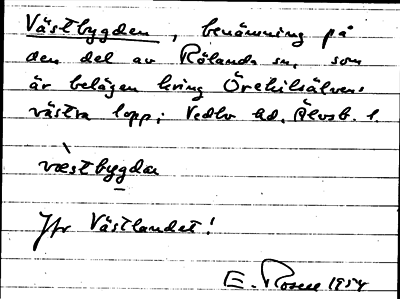 Västbygden, benämning på
den del av Rölanda sn, som
är belägen kring Örekilsälvens
västra lopp; Vedbo hd, Älvsb. l.
vä̀stbygdan
Jfr Västlandet!
E. Rosell 1954